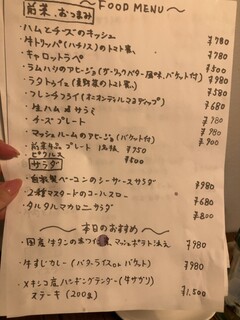 ~ FOOD MENU ~
前菜、おつまみ
・ハムとチーズのキッシュ ¥780
・牛トリッパ(ハチノス)のトマト煮 ¥780
・キャロットラペ ¥500
・ラムハツのアヒージョ(ガーリックバター風味、バケット付) ¥980
・ラタトゥイユ(夏野菜のトマト煮) ¥580
・フレンチフライ ¥680
・生ハム サラミ ¥780
・チーズプレート ¥780
・マッシュルームのアヒージョ(バケット付) ¥980
・前菜 プレート ¥750
・ピクルス ¥500
サラダ
・自家製ベーコンのシーザーサラダ ¥980
・2種マスタードのコールスロー ¥680
・タルタルマカロニサラダ ¥800
~ 本日のおすすめ ~
・国産牛タンの マッシュポテト ¥980
・牛すじカレー(バターライス or バケット) ¥980
・メキシコ産ハンギングテンダー(牛サガリ)
ステーキ(200g) ¥1,500